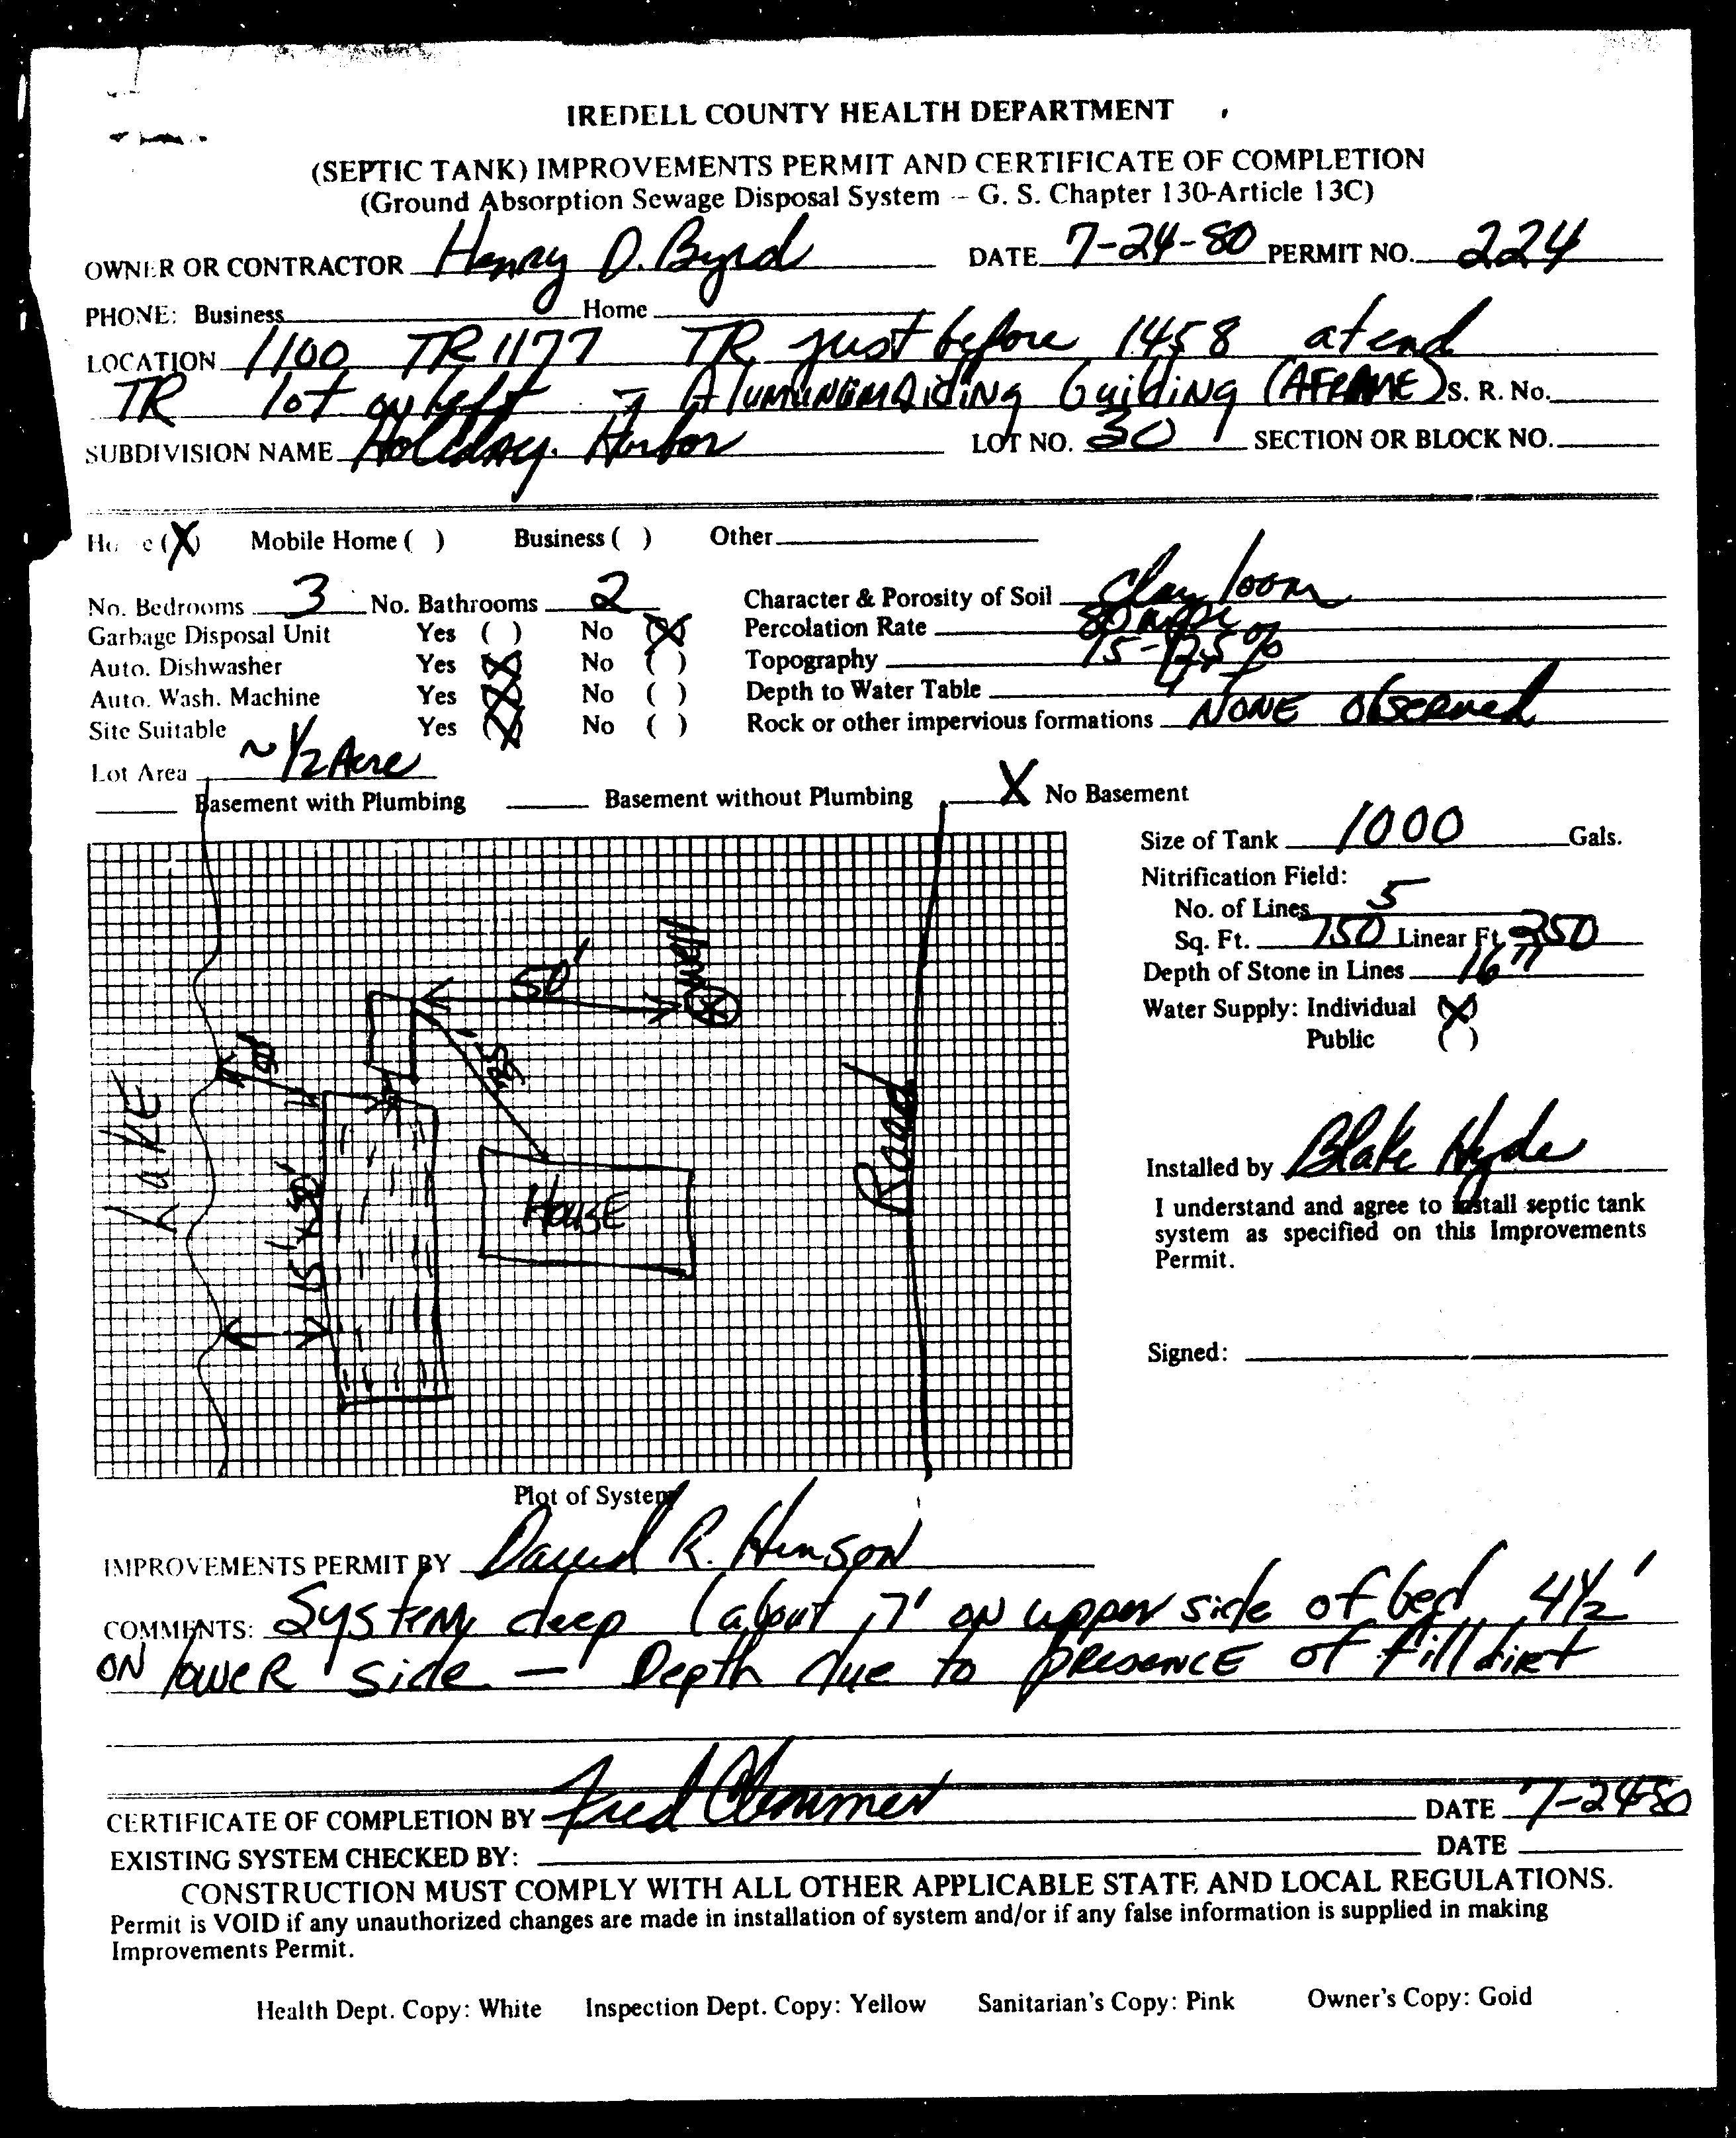 IREDELL COUNTY HEALTH DEPARTMENT
(SEPTIC TANK) IMPROVEMENTS PERMIT AND CERTIFICATE OF COMPLETION
(Ground Absorption Sewage Disposal System -- G. S. Chapter 130-Article 13C)
OWNER OR CONTRACTOR Henry D. Byrd DATE 7-24-80 PERMIT NO. 224
PHONE: Business Home
LOCATION 1100 TR 1177 TR just before 1458 at end
TR lot on left Alumunum siding building (AFRAME) S. R. No.
SUBDIVISION NAME Holiday Harbor LOT NO. 30 SECTION OR BLOCK NO.
(X) Mobile Home ( ) Business ( ) Other
No. Bedrooms 3 No. Bathrooms 2 Character & Porosity of Soil Clay loom
Garbage Disposal Unit Yes ( ) No (X) Percolation Rate 80
Auto. Dishwasher Yes (X) No ( ) Topography 15-25%
Auto. Wash. Machine Yes (X) No ( ) Depth to Water Table 4'+
Site Suitable Yes (X) No ( ) Rock or other impervious formations NONE observed
Lot Area ~ 1/2 Acre
Basement with Plumbing Basement without Plumbing X No Basement
Size of Tank 1000 Gals.
Nitrification Field:
No. of Lines 5
Sq. Ft. 750 Linear Ft. 250
Depth of Stone in Lines 16"
Water Supply: Individual (X)
Public ( )
Well
50'
35'
LAKE
15' x 50'
HOUSE
Road
Installed by Blake Hyde
I understand and agree to install septic tank
system as specified on this Improvements
Permit.
Signed:
Plot of System
IMPROVEMENTS PERMIT BY David R. Henson
COMMENTS: System deep (about 7' on upper side of bed, 4½'
ON lower side – Depth due to presence of fill dirt
CERTIFICATE OF COMPLETION BY Fred Clemmer DATE 7-24-80
EXISTING SYSTEM CHECKED BY: DATE
CONSTRUCTION MUST COMPLY WITH ALL OTHER APPLICABLE STATE AND LOCAL REGULATIONS.
Permit is VOID if any unauthorized changes are made in installation of system and/or if any false information is supplied in making
Improvements Permit.
Health Dept. Copy: White Inspection Dept. Copy: Yellow Sanitarian's Copy: Pink Owner's Copy: Gold